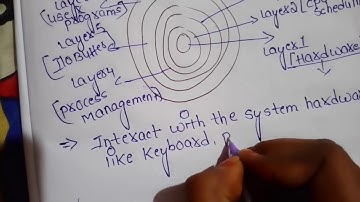 [user
programs]
Layer5
[I/OBuffer]
Layer4
[process
management]
Layer2 [CPU
Scheduling
Layer1
[Hardware]
⇒ Interact with the system hardware
like Keyboard,